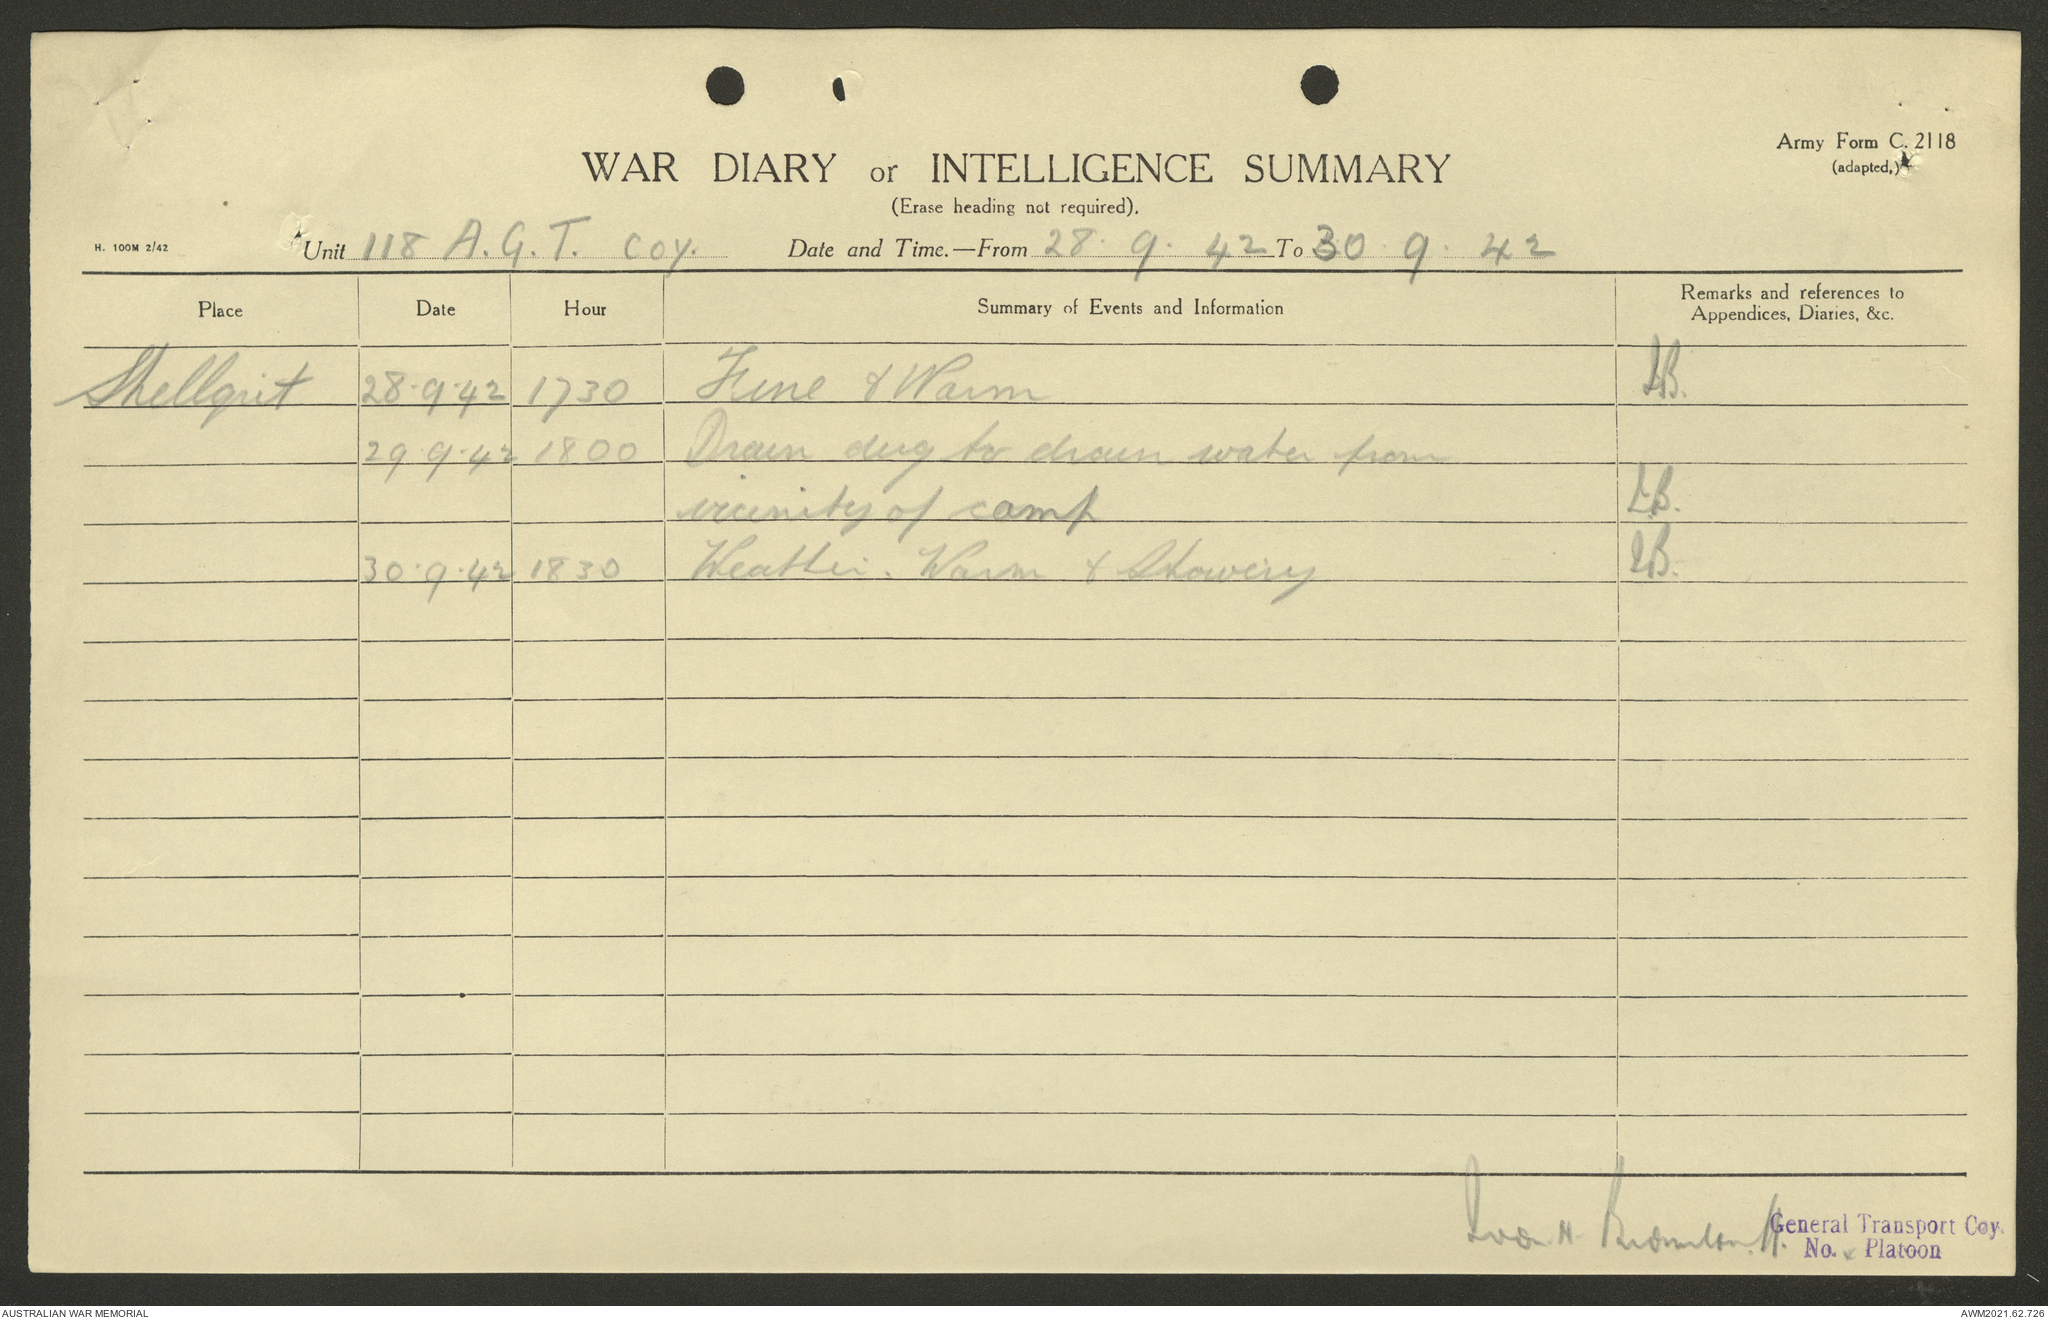 Army Form C. 2118
(adapted.)
WAR DIARY or INTELLIGENCE SUMMARY
(Erase heading not required).
H. 100M 2/42
Unit 118 A.G.T. Coy. Date and Time.—From 28. 9. 42 To 30. 9. 42
Place Date Hour Summary of Events and Information Remarks and references to
Appendices, Diaries, &c.
Shellgrit 28.9.42 1730 Fine & Warm
29.9.42 1800 Drain dug to drain water from
vicinity of camp
30.9.42 1830 Weather. Warm & Showery
General Transport Coy.
No. Platoon
AUSTRALIAN WAR MEMORIAL
AWM2021.62.726